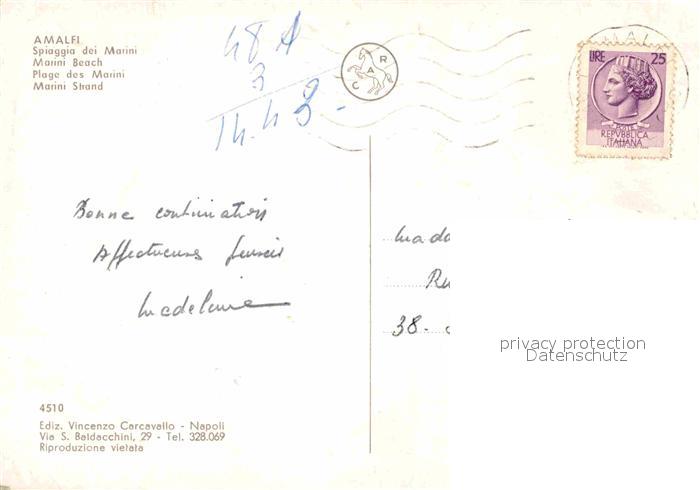 AMALFI
Spiaggia dei Marini
Marini Beach
Plage des Marini
Marini Strand
48 A
3
14.43-
C A R
LIRE 25
POSTE
REPVBBLICA
ITALIANA
Bonne continuation
Affectueuses pensées
Madeleine
Mada
Ru
38-
privacy protection
Datenschutz
4510
Ediz. Vincenzo Carcavallo - Napoli
Via S. Baldacchini, 29 - Tel. 328.069
Riproduzione vietata